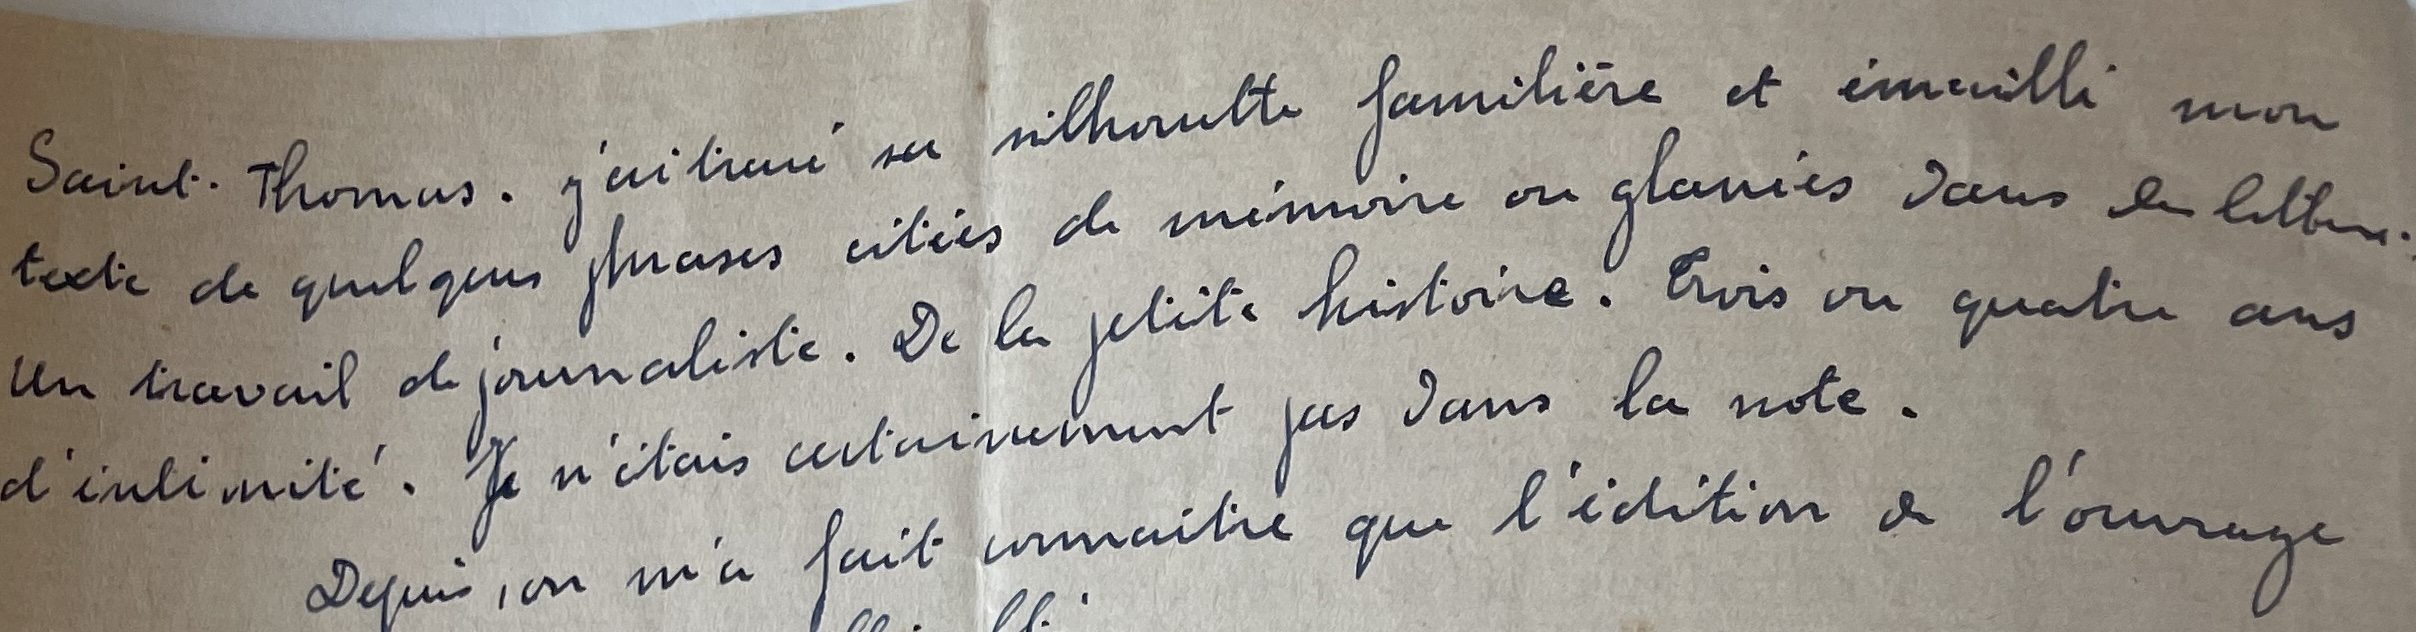 Saint-Thomas. J'ai tracé sa silhouette familière et émaillé mon
texte de quelques phrases citées de mémoire ou glanées dans des lettres.
Un travail de journaliste. De la petite histoire. Trois ou quatre ans
d'intimité. Je n'étais certainement pas dans la note.
Depuis, on m'a fait connaitre que l'édition de l'ouvrage